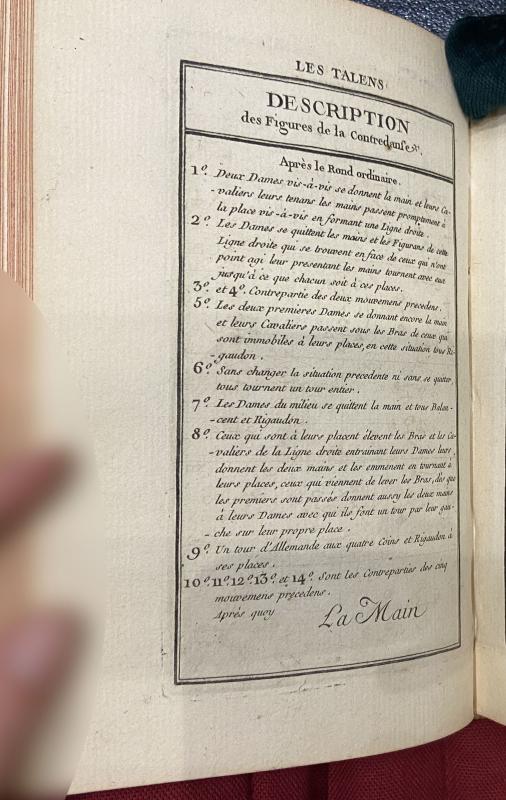 LES TALENS
DESCRIPTION
des Figures de la Contredanse &c.
Après le Rond ordinaire.
1º. Deux Dames vis-à-vis se donnent la main et leurs Ca-
-valiers leurs tenans les mains passent promptement à
la place vis-à-vis en formant une Ligne droite.
2º. Les Dames se quittent les mains et les Figurans de cette
Ligne droite qui se trouvent en face de ceux qui n'ont
point agi leur presentant les mains tournent avec eux
jusqu'à ce que chacun soit à ces places.
3º. et 4º. Contrepartie des deux mouvemens precedens.
5º. Les deux premieres Dames se donnant encore la main
et leurs Cavaliers passent sous les Bras de ceux qui
sont immobiles à leurs places, en cette situation tous Ri-
-gaudon.
6º. Sans changer la situation precedente ni sans se quitter,
tous tournent un tour entier.
7º. Les Dames du milieu se quittent la main et tous Balan-
-cent et Rigaudon.
8º. Ceux qui sont à leurs placent élevent les Bras et les Ca-
-valiers de la Ligne droite entrainant leurs Dames leurs
donnent les deux mains et les emmenent en tournant à
leurs places, ceux qui viennent de lever les Bras, dès que
les premiers sont passés donnent aussy les deux mains
à leurs Dames avec qui ils font un tour par leur gau-
-che sur leur propre place.
9º. Un tour d'Allemande aux quatre Coins et Rigaudon à
ses places.
10º. 11º. 12º. 13º. et 14º. Sont les Contreparties des cinq
mouvemens precedens.
Après quoy La Main